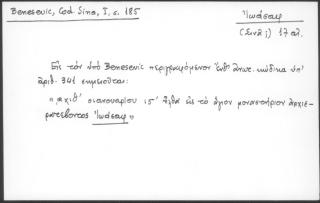 Benesevic, Cod. Sina, I, s. 185
Ἰωάσαφ
(Σινᾶ ;) 17 αἰ.
Εἰς τὸν ὑπὸ Benesevic περιγραφόμενον ἀνωτ. κώδικα ὑπ'
ἀριθ. 341 σημειοῦται:
"αχιθ' ἰανουαρίου ις' ἦλθα εἰς τὸ ἅγιον μοναστήριον ἀρχιε-
ρατεύοντος Ἰωάσαφ"